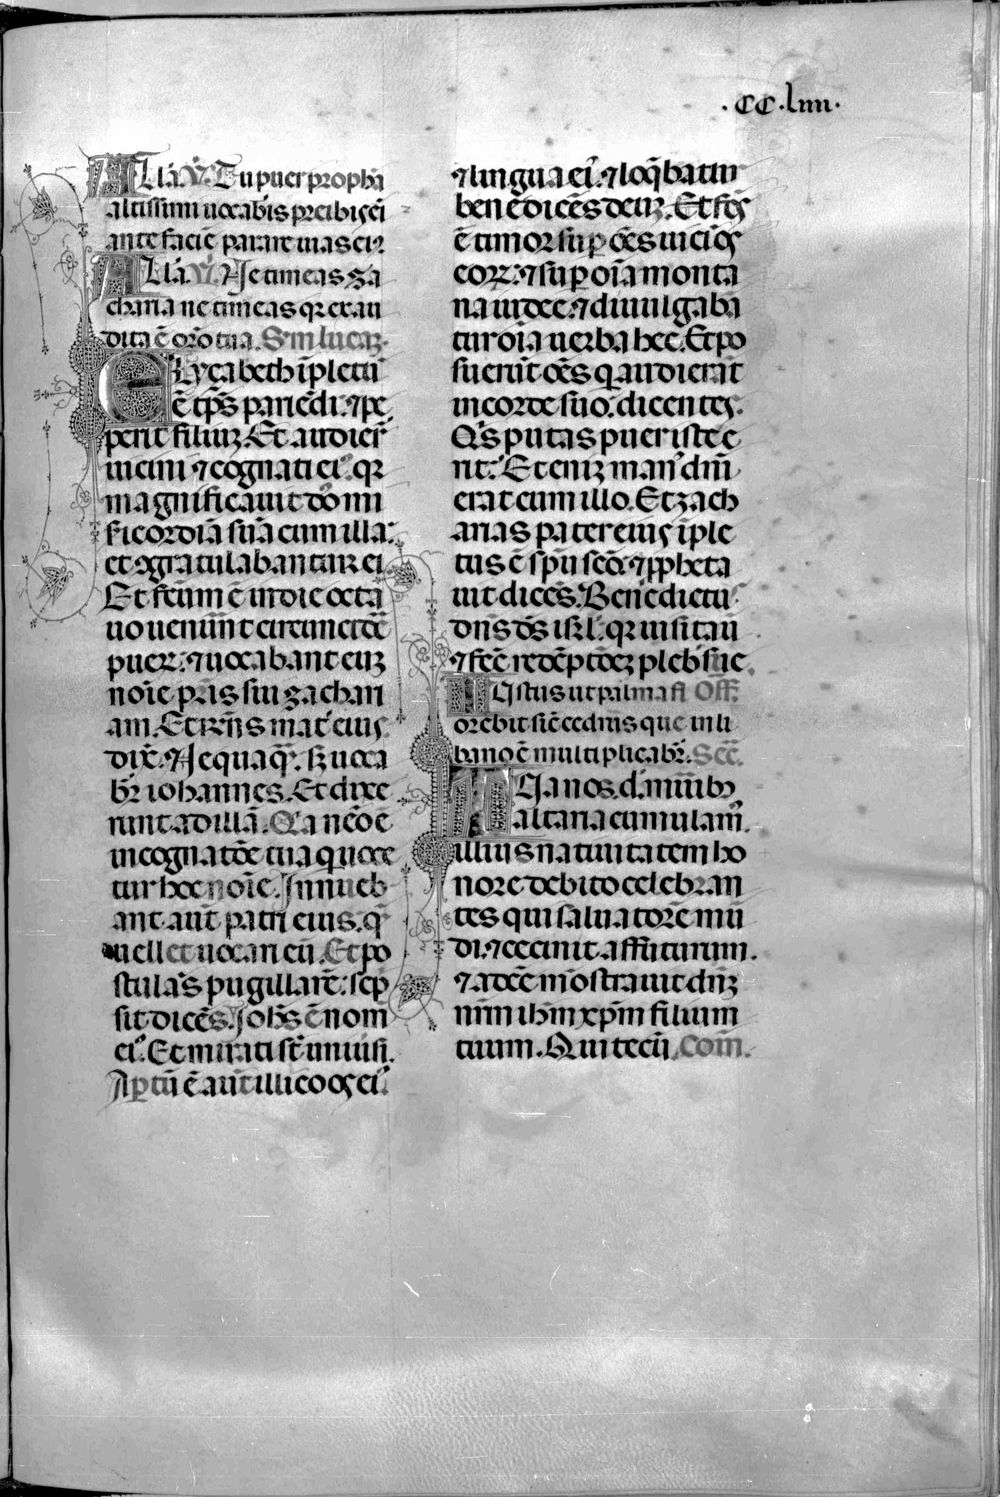 .CC.lııı.
Allā. V̄. Tu puer prophā
altissimi uocab̄is preibis ei
ante faciē parare uias ei9
Allā. V̄. Ne timeas za
charia ne timeas qr exau
dita ē orō tua. Sm lucaz.
Elyçabeth īpletū
ē tp̄s pariēdi. ⁊ pe
perit filiuz. Et audier̄
uicini ⁊ cognati ei9. qr
magnificauit dō mi
sicordiā suā cum illa.
et ɔgratulabantur ei
Et fcūm ē in die octa
uo uenūnt circuncidē
puer. ⁊ uocabant euz
noīe pr̄is sui zachari
am. Et rn̄s mat̄ eius
dix̄. Nequaq̄. sz uoca
br̄ iohannes. Et dixe
runt ad illā. Qa nēo ē
in cognatōe tua qui uoce
tur hoc noīe. Innueb
ant aut̄ patri eius. q̄
uellet uocari eū. Et po
stulās pugillarē. scp̄
sit dicēs. Johēs ē nom̄
ei9. Et mirati st̄ uniuīsi.
Apertū ē aut̄ illico os ei9
⁊ lingua ei9. ⁊ loq̄batur
benedicēs deuz. Et fcs̄
ē timor sup ōēs uicīos
eorz. ⁊ sup oīa monta
na iudee. ⁊ diuulgaba
tur oīa uerba hec. Et po
suerūt ōēs q audierāt
in corde suo. dicentes.
Qs putas puer iste e
rit. Et eniz man9 dnī
erat cum illo. Et zach
arias pater eius īple
tus ē spū scō. ⁊ ppheta
uit dicēs. Benedictu9
dn̄s dēs isrl. qr uisitaū
⁊ fec̄ redēptōez pleb̄ sue.
Iustus ut palma fl Off̄.
orebit sic̄ cedrus que in li
bano ē multiplicabr̄. Sec̄.
Tua nos. d. mūib9
altaria cumulam9.
illius natiuitatem ho
nore debito celebran
tes qui saluatorē mū
di. ⁊ cecinit affuturum.
⁊ adēē mōstrauit dn̄z
nr̄m ihm̄ xp̄m filium
tuum. Qui tecū. Com̄.